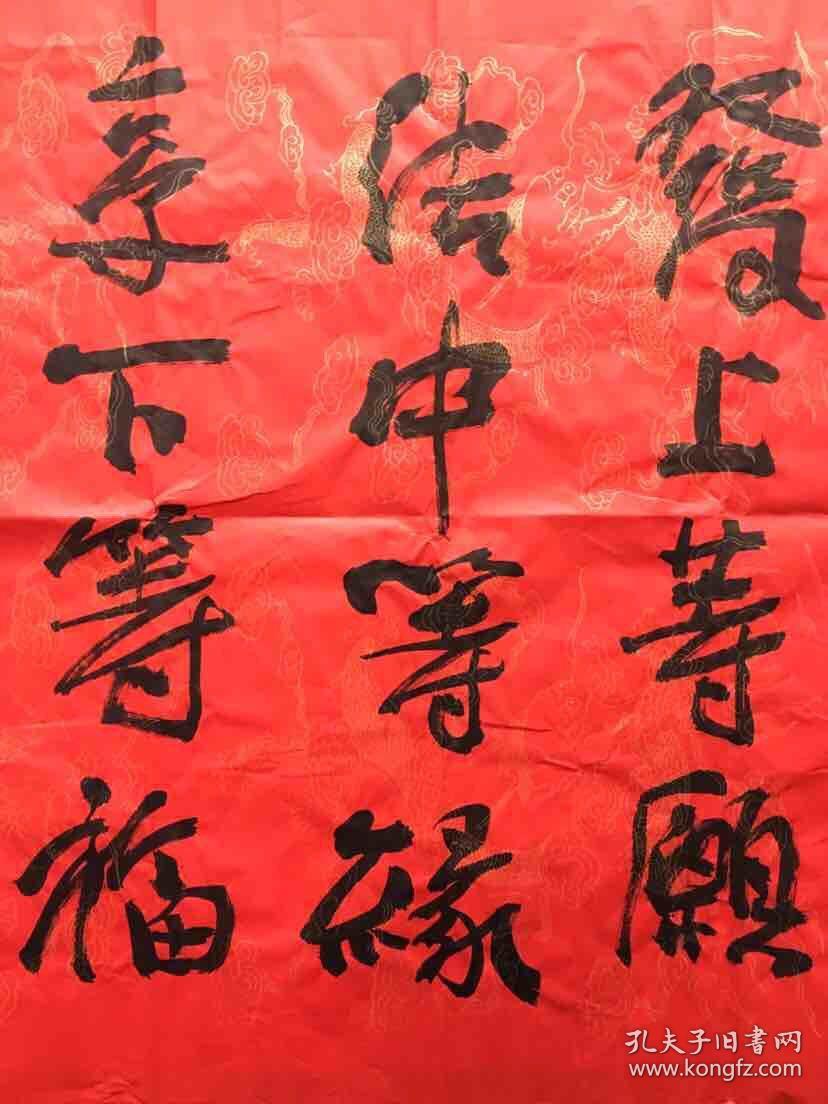 發上等願
结中等緣
享下等福
孔夫子旧书网
www.kongfz.com